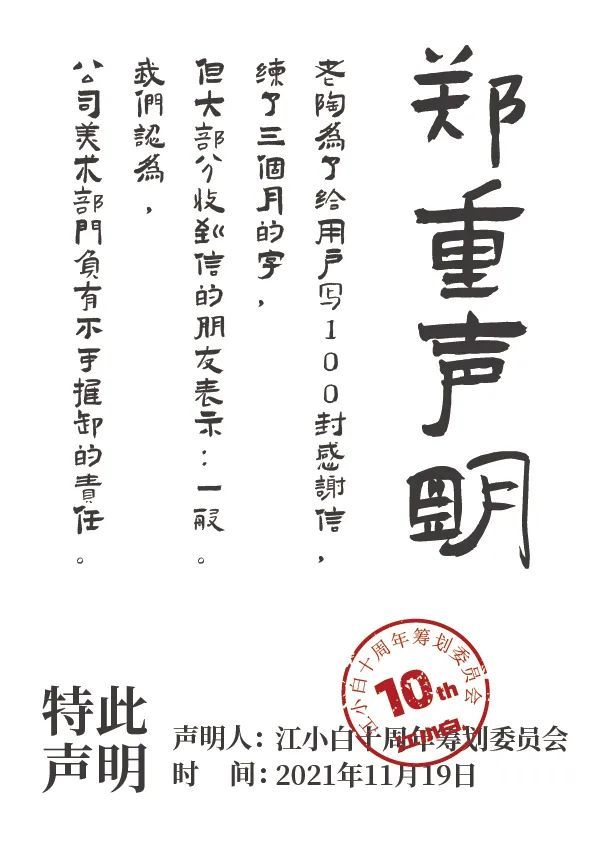 郑重声明
老陶為了给用户写100封感謝信，
练了三個月的字，
但大部分收到信的朋友表示：一般。
我們認為，
公司美术部門負有不可推卸的責任。
江小白十周年筹划委员会
10th
江小白
特此
声明
声明人：江小白十周年筹划委员会
时　间：2021年11月19日